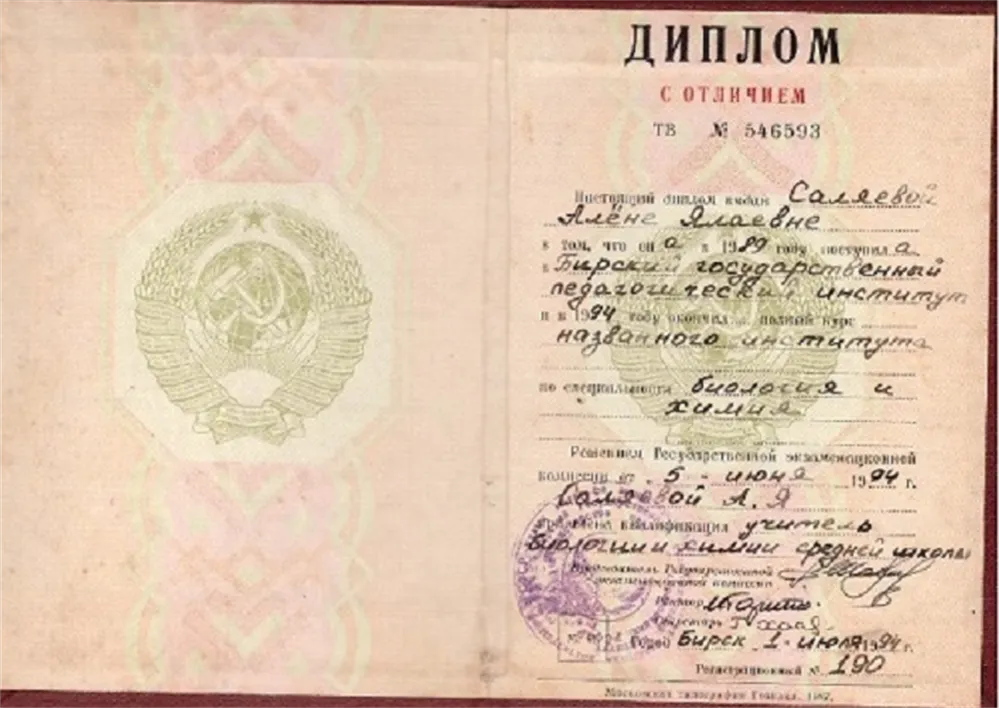 ДИПЛОМ
С ОТЛИЧИЕМ
ТВ № 546593
Настоящий диплом выдан Саляевой
Алёне Ялаевне
в том, что он а в 1989 году поступил а
в Бирский государственный
педагогический институт
и в 1994 году окончил полный курс
названного института
по специальности биология и
химия
Решением Государственной экзаменационной
комиссии от 5 - июня 1994 г.
Саляевой А. Я
присвоена квалификация учитель
биологии и химии средней школы
Председатель Государственной
экзаменационной комиссии
Ректор
Секретарь
Город Бирск 1 - июля 1994 г.
Регистрационный № 190
Московская типография Гознака. 1987.